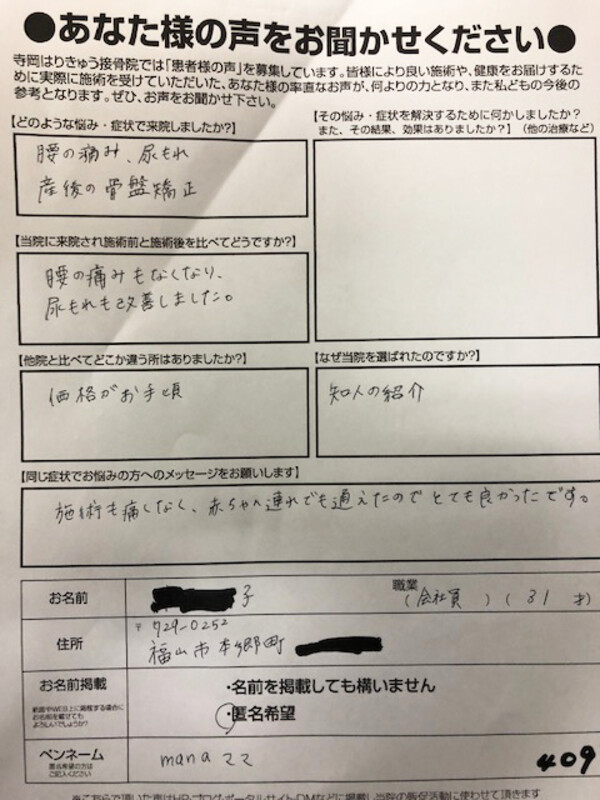 ●あなた様の声をお聞かせください●
寺岡はりきゅう接骨院では「患者様の声」を募集しています。皆様により良い施術や、健康をお届けするた
めに実際に施術を受けていただいた、あなた様の率直なお声が、何よりの力となり、また私どもの今後の
参考となります。ぜひ、お声をお聞かせ下さい。
【どのような悩み・症状で来院しましたか?】
腰の痛み、尿もれ
産後の骨盤矯正
【その悩み・症状を解決するために何かしましたか?
また、その結果、効果はありましたか?】(他の治療など)
【当院に来院され施術前と施術後を比べてどうですか?】
腰の痛みもなくなり、
尿もれも改善しました。
【他院と比べてどこか違う所はありましたか?】
価格がお手頃
【なぜ当院を選ばれたのですか?】
知人の紹介
【同じ症状でお悩みの方へのメッセージをお願いします】
施術も痛くなく、赤ちゃん連れでも通えたのでとても良かったです。
お名前
子
職業
(会社員)(31才)
住所
〒729-0252
福山市本郷町
お名前掲載
紙面やWEB上に掲載する場合に
お名前を載せても
よろしいでしょうか?
・名前を掲載しても構いません
・匿名希望
ペンネーム
匿名希望の方は
ご記入ください
manaママ
409
※こちらで頂いた声はHP・ブログ・ポータルサイト・DMなどに掲載し当院の販促活動に使わせて頂きます